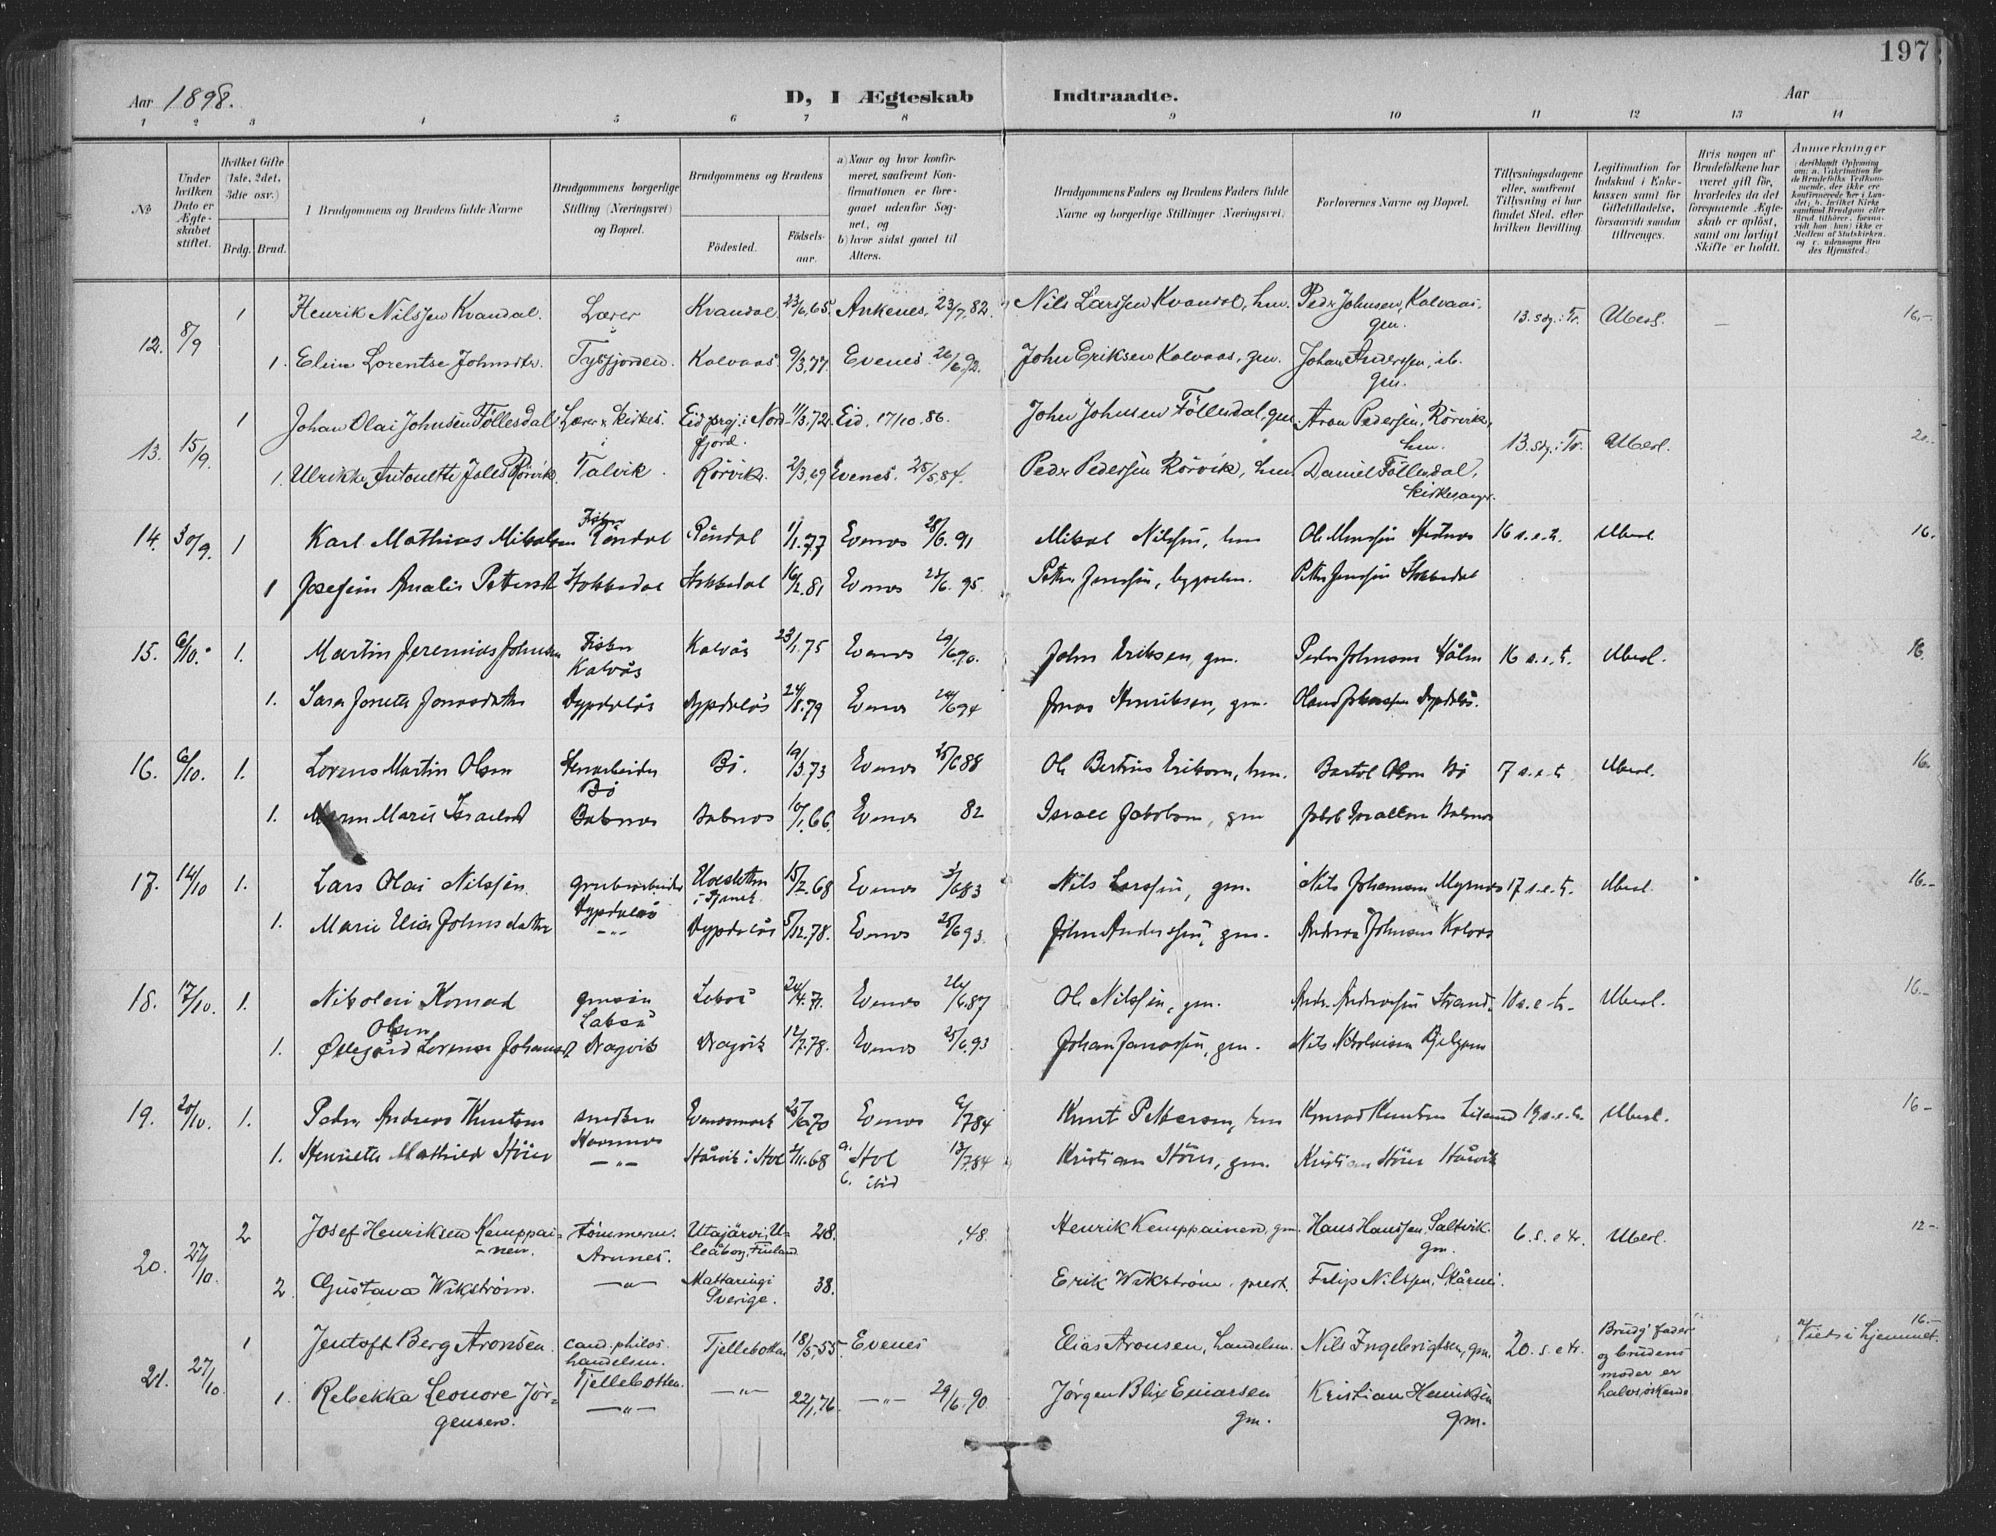 197
Aar 1898.
D, I Ægteskab Indtraadte.
Aar
1 2 3 4 5 6 7 8 9 10 11 12 13 14
No
Under hvilken Dato er Ægteskabet stiftet.
Hvilket Gifte (1ste, 2det, 3die osv.)
Brdg. Brud.
1 Brudgommens og Brudens fulde Navne
Brudgommens borgerlige Stilling (Næringsvei) og Bopæl.
Brudgommens og Brudens
Fødested.
Fødselsaar.
a) Naar og hvor konfirmeret, saafremt Konfirmationen er foregaaet udenfor Sognet, og
b) hvor sidst gaaet til Alters.
Brudgommens Faders og Brudens Faders fulde Navne og borgerlige Stillinger (Næringsvei).
Forlovernes Navne og Bopæl.
Tillysningsdagene eller, saafremt Tillysning ei har fundet Sted, efter hvilken Bevilling.
Legitimation for Indskud i Enkekassen samt for Giftetilladelse, forsaavidt saadan tiltrænges.
Hvis nogen af Brudefolkene har været gift før, hvorledes da det foregaaende Ægteskab er opløst, samt om lovligt Skifte er holdt.
Anmerkninger
12. 8/9 1 Henrik Nilssen Kvandal. Lærer Kvandal 23/6,65 Ankenes, 23/7,82. Nils Larssen Kvandal, hm. Peder Johnsen, Kalvaas. gm. 13. sdg. i Tr. Uberl. — 16.-
1. Eline Lorentse Johnsdtr. Tysfjorden. Kalvaas 9/3,77 Evenes 26/6,92. John Eriksen Kalvaas, gm. Johan Anderssen, ib. gm.
13. 15/9. 1 Johan Olai Johnsen Föllesdal Lærer & kirkes. i Eid prgj. i Nordfjord. 11/3,72. Eid. 17/10.86. John Johnsen Föllesdal, gm. Aron Pedersen, Rörvik, hm. 13. sdg. i Tr. Uberl. 20.-
1. Ulrikke Antonette Rörvik. Talvik. Rörvik. 2/3,69 Evenes. 25/5,84. Peder Pedersen Rörvik, hm. Daniel Föllesdal, kirkesanger.
14. 30/9. 1 Karl Mathias Fisker Råndal Råndal 1/1.77 Evenes 28/6.91 Mikal Nilssen, hm 16 s.e.tr. Uberl. 16.
1 Josefine Amalie Pettersd. Stokkedal Stokkedal 16/2.81 Evenes 6.95. Petter Jenssen, Petter Jenssen Stokkedal
15. 6/10. 1. Martin Jeremias Johnsen Fisker Kalvås Kalvås 23/1.75 Evenes 29/6 90. John Eriksen, gm. Peder Johnsen 16 s.e.tr. Uberl. 16.
1. Sara Joneta Jonasdatter Dypdalås Dypdalås 24/8.79 Evenes 24/6 94 Jonas Henriksen, gm. Dypdalås.
16. 6/10. 1. Lorens Martin Olsen Stenarbeider Bö Bö. 19/3.73 Evenes 25/6 88 Ole Bertius Eriksen, hm. Bartol Olsen Bö 7 s.e.tr. Uberl. 16.
1. Maren Marie Israelsd Balsnes Balsnes 10/1.66. Evenes 82 Israel Jakobsen, gm Jakob Israelsen Balsnes
17. 14/10 1. Lars Olai Nilssen. grubearbeider Dypdalås 15/2.68 Evenes 3/6 83 Nils Larssen, gm. Nils Johansen Myrnes 17 s.e.tr. Uberl. 16.-
1. Marie Elise Johnsdatter —„— Dypdalås 5/12.78. Evenes 25/6 93. John Anderssen, gm. Andreas Johnsen Kalvås
18. 17/10. 1. Nikolai Konrad Olsen gmsön 24/4.71. Evenes 26/6.87 Ole Nilssen, gm. Andr. Andreassen Strand. 18 s.e.tr. Uberl. 16.-
1. Ovegård Lorense Johansd. Dragvik Dragvik 12/7.78. Evenes 25/6.93 Johan Jonassen, gm. Nils Nikolaisen
19. 20/10. 1. Peder Andreas Knutsen Evenesmark 25/6 70 Evenes 6/7 84 Knut Pettersen, hm Konrad Knutsen 19 s.e.tr. Uberl. 16-
1. Henriette Mathilde Störe —„— Hol 2/11.68 a. Hol 13/7 84 b. ibid Kristian Störe, gm. Kristian Störe
20. 27/10. 2 Josef Henriksen Kemppainen. tömmerm. Arnnes. Utajärvi, Uleåborg, Finland 28. ,48. Henrik Kemppainen, gm. Hans Hanssen, Saltvik. gm. 6. s. e tr. Uberl. 12-
2. Gustava Wikström. —„— Mattaringi Sverige. 38. Erik Wikström, prest. Filip Nilssen, Skårnes.
21. 27/10. 1 Jentoft Berg Aronsen. cand. philos. handelsm. Tjellebotten. Tjellebotten 18/5,55. Evenes Elias Aronsen, handelsm. Nils Ingebrigtsen, gm. 20. s. e tr. Brudg. fader og brudens moder er halvsöskende. Viet i hjemmet. 16.-
1. Rebekka Leonore Jörgensen. —„— —„— 22/1,76. —„— 29/6.90 Jörgen Blix Einarsen gm. Kristian Henriksen gm.